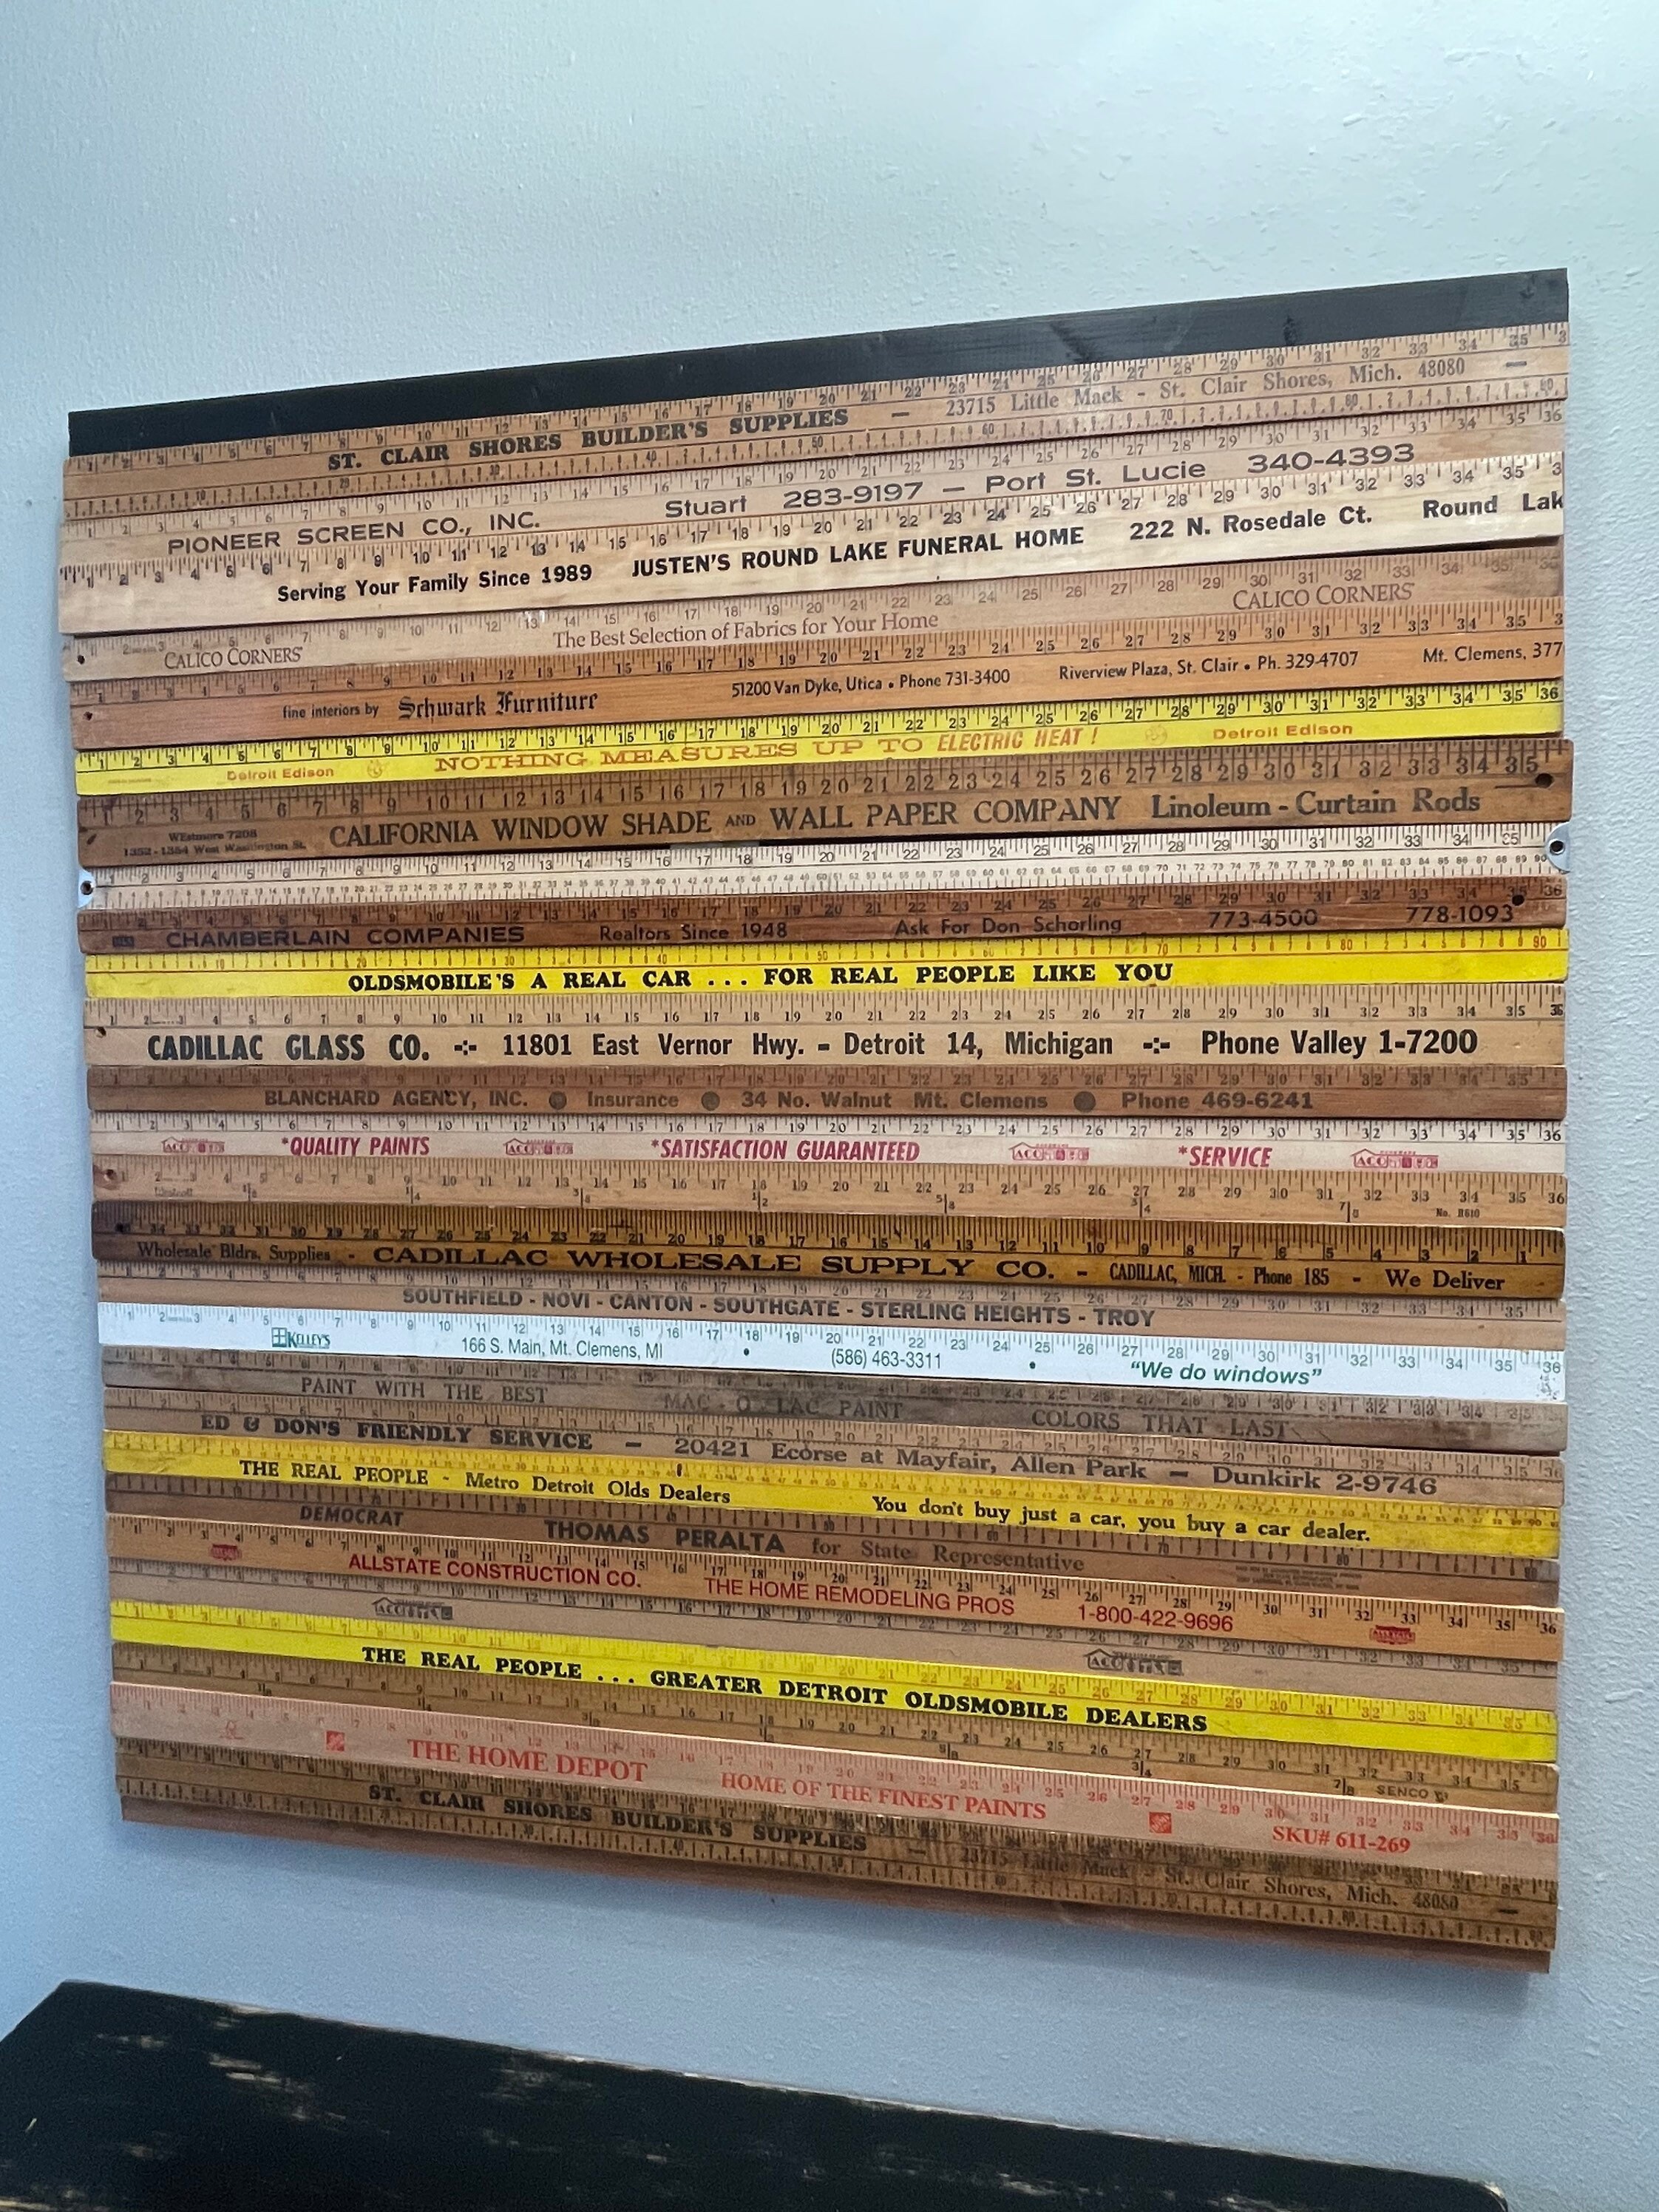 ST. CLAIR SHORES BUILDER'S SUPPLIES — 23715 Little Mack - St. Clair Shores, Mich. 48080 —
PIONEER SCREEN CO., INC. Stuart 283-9197 — Port St. Lucie 340-4393
Serving Your Family Since 1989 JUSTEN'S ROUND LAKE FUNERAL HOME 222 N. Rosedale Ct. Round Lak
CALICO CORNERS The Best Selection of Fabrics for Your Home CALICO CORNERS
fine interiors by Schwark Furniture 51200 Van Dyke, Utica • Phone 731-3400 Riverview Plaza, St. Clair • Ph. 329-4707 Mt. Clemens, 377
Detroit Edison NOTHING MEASURES UP TO ELECTRIC HEAT! Detroit Edison
WEstmore 7208
1352-1354 West Washington St. CALIFORNIA WINDOW SHADE AND WALL PAPER COMPANY Linoleum - Curtain Rods
CHAMBERLAIN COMPANIES Realtors Since 1948 Ask For Don Schorling 773-4500 778-1093
OLDSMOBILE'S A REAL CAR . . . FOR REAL PEOPLE LIKE YOU
CADILLAC GLASS CO. -:- 11801 East Vernor Hwy. - Detroit 14, Michigan -:- Phone Valley 1-7200
BLANCHARD AGENCY, INC. ● Insurance ● 34 No. Walnut Mt. Clemens ● Phone 469-6241
*QUALITY PAINTS *SATISFACTION GUARANTEED *SERVICE
Westcott No. R610
Wholesale Bldrs. Supplies - CADILLAC WHOLESALE SUPPLY CO. - CADILLAC, MICH. - Phone 185 - We Deliver
SOUTHFIELD - NOVI - CANTON - SOUTHGATE - STERLING HEIGHTS - TROY
KELLEY'S 166 S. Main, Mt. Clemens, MI • (586) 463-3311 • "We do windows"
PAINT WITH THE BEST MAC-O-LAC PAINT COLORS THAT LAST
ED & DON'S FRIENDLY SERVICE — 20421 Ecorse at Mayfair, Allen Park — Dunkirk 2-9746
THE REAL PEOPLE - Metro Detroit Olds Dealers You don't buy just a car, you buy a car dealer.
DEMOCRAT THOMAS PERALTA for State Representative
ALLSTATE CONSTRUCTION CO. THE HOME REMODELING PROS 1-800-422-9696
THE REAL PEOPLE . . . GREATER DETROIT OLDSMOBILE DEALERS
SENCO
THE HOME DEPOT HOME OF THE FINEST PAINTS SKU# 611-269
ST. CLAIR SHORES BUILDER'S SUPPLIES — 23715 Little Mack - St. Clair Shores, Mich. 48080 —